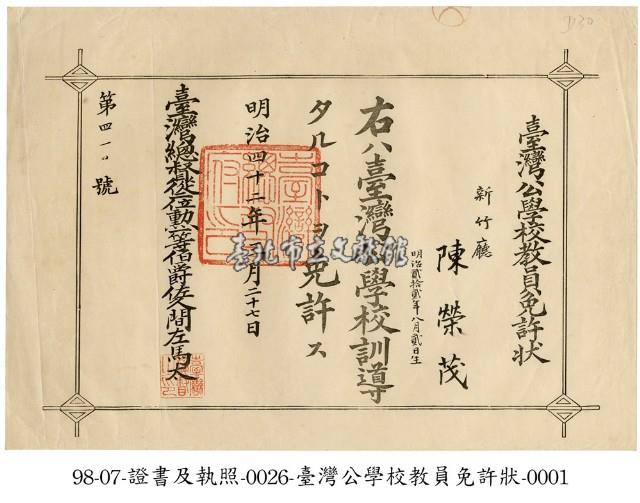 臺灣公學校教員免許狀
新竹廳
陳榮茂
明治貳拾貳年八月貳日生
右ハ臺灣公學校訓導
タルコトヲ免許ス
明治四十二年 月二十七日
臺灣總督從位勳等伯爵佐久間左馬太
第四一 號
臺北市立文獻館
98-07-證書及執照-0026-臺灣公學校教員免許狀-0001